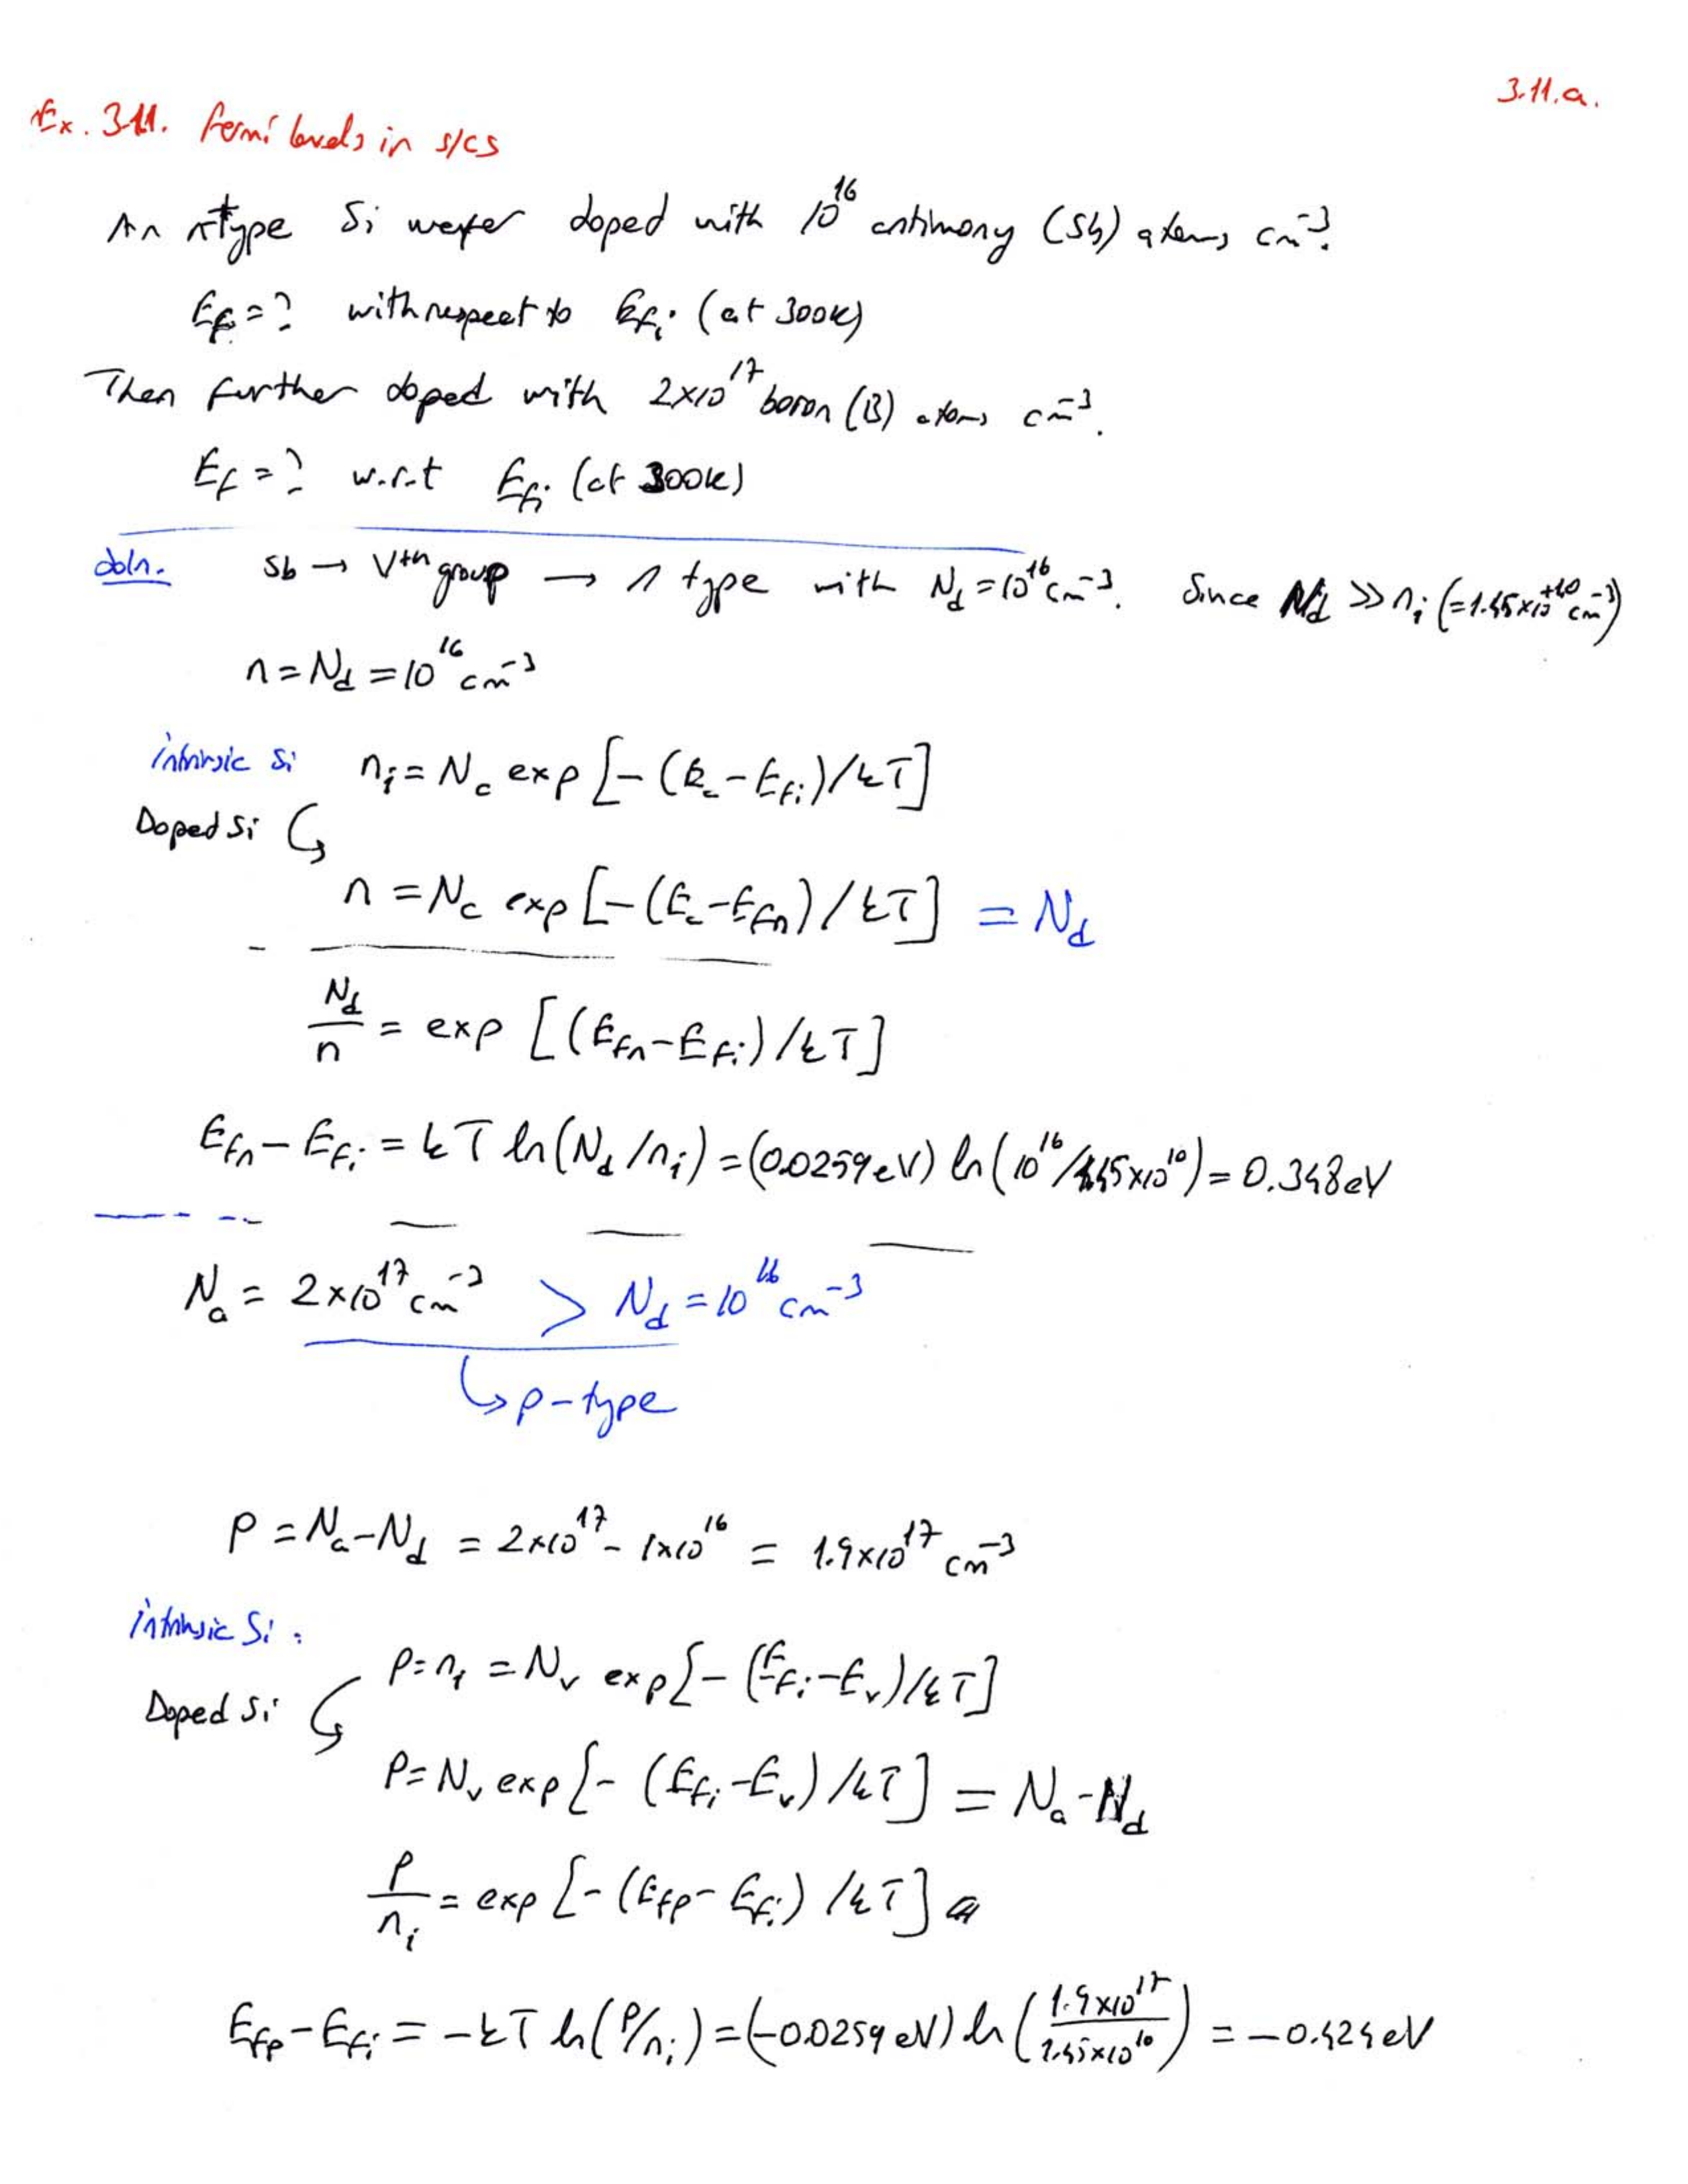 3.11.a.
Ex. 3.11. Fermi levels in s/cs
An n type Si wafer doped with 10^16 antimony (Sb) atoms cm^-3.
E_F = ? with respect to E_Fi (at 300K)
Then further doped with 2×10^17 boron (B) atoms cm^-3.
E_F = ? w.r.t E_Fi (at 300K)
Soln. Sb → Vth group → n type with N_d = 10^16 cm^-3. Since N_d >> n_i (= 1.45×10^+10 cm^-3)
n = N_d = 10^16 cm^-3
intrinsic Si n_i = N_c exp [-(E_c - E_Fi)/kT]
Doped Si
n = N_c exp [-(E_c - E_Fn)/kT] = N_d
N_d/n = exp [(E_Fn - E_Fi)/kT]
E_Fn - E_Fi = kT ln(N_d/n_i) = (0.0259 eV) ln(10^16/1.45×10^10) = 0.348 eV
N_a = 2×10^17 cm^-3 > N_d = 10^16 cm^-3
↳ p-type
P = N_a - N_d = 2×10^17 - 1×10^16 = 1.9×10^17 cm^-3
intrinsic Si :
P = n_i = N_v exp [-(E_Fi - E_v)/kT]
Doped Si
P = N_v exp [-(E_Fi - E_v)/kT] = N_a - N_d
P/n_i = exp [-(E_Fp - E_Fi)/kT]
E_Fp - E_Fi = -kT ln(P/n_i) = (-0.0259 eV) ln(1.9×10^17/1.45×10^10) = -0.424 eV